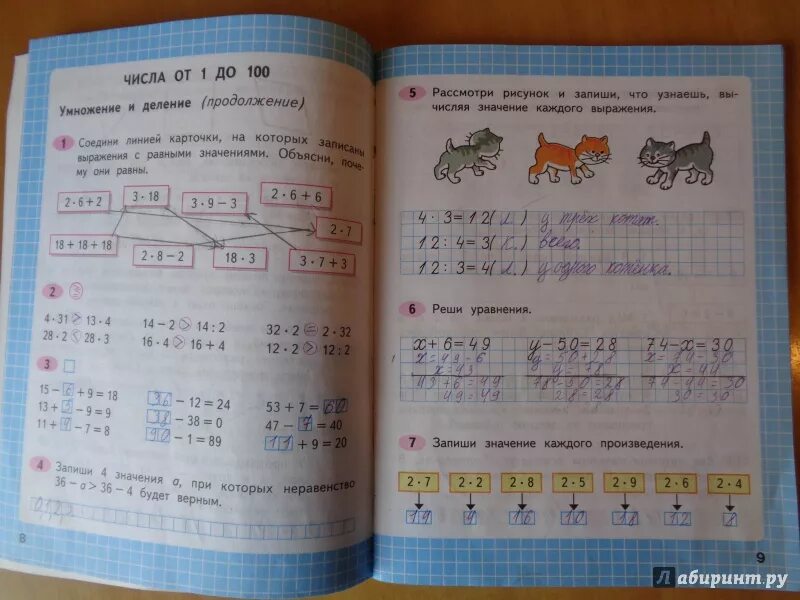 ЧИСЛА ОТ 1 ДО 100
Умножение и деление (продолжение)
1 Соедини линией карточки, на которых записаны
выражения с равными значениями. Объясни, поче-
му они равны.
2·6+2 3·18 3·9−3 2·6+6
2·7
18+18+18 2·8−2 18·3 3·7+3
2
4·31 > 13·4 14−2 > 14:2 32·2 = 2·32
28·2 < 28·3 16·4 > 16+4 12·2 > 12:2
3
15−6+9=18 36−12=24 53+7=60
13+5−9=9 38−38=0 47−7=40
11+4−7=8 90−1=89 11+9=20
4 Запиши 4 значения а, при которых неравенство
36−а>36−4 будет верным.
0,1,2,3
8
5 Рассмотри рисунок и запиши, что узнаешь, вы-
числяя значение каждого выражения.
4·3=12(л.) у трёх котят.
12:4=3(к.) всего.
12:3=4(л.) у одного котёнка.
6 Реши уравнения.
х+6=49 у−50=28 74−х=30
х=49−6 у=50+28 х=74−30
х=43 у=78 х=44
43+6=49 78−50=28 74−44=30
49=49 28=28 30=30
7 Запиши значение каждого произведения.
2·7 2·2 2·8 2·5 2·9 2·6 2·4
14 4 16 10 18 12 8
9
Лабиринт.ру